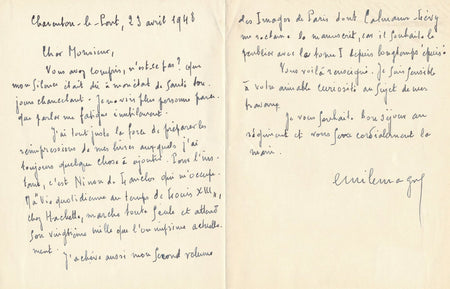 Charenton-le-Pont, 23 avril 1948
Cher Monsieur,
Vous avez compris, n'est-ce pas ? que
mon silence était dû à mon état de santé tou-
jours chancelant. Je ne vois plus personne parce
que parler me fatigue inutilement.
J'ai tout juste la force de préparer les
réimpressions de mes livres auxquels j'ai
toujours quelque chose à ajouter. Pour l'ins-
tant, c'est Ninon de Lanclos qui m'occupe.
Ma Vie quotidienne au temps de Louis XIII,
chez Hachette, marche toute seule et atteint
son vingtième mille que l'on imprime actuelle-
ment. J'achève aussi mon second volume
des Images de Paris dont Calmann-Lévy
me réclame le manuscrit, car il souhaite le
publier avec le tome I depuis longtemps épuisé.
Vous voilà renseigné. Je suis sensible
à votre aimable curiosité au sujet de mes
travaux.
Je vous souhaite bon séjour au
et vous serre cordialement la
main.
Emile Magne